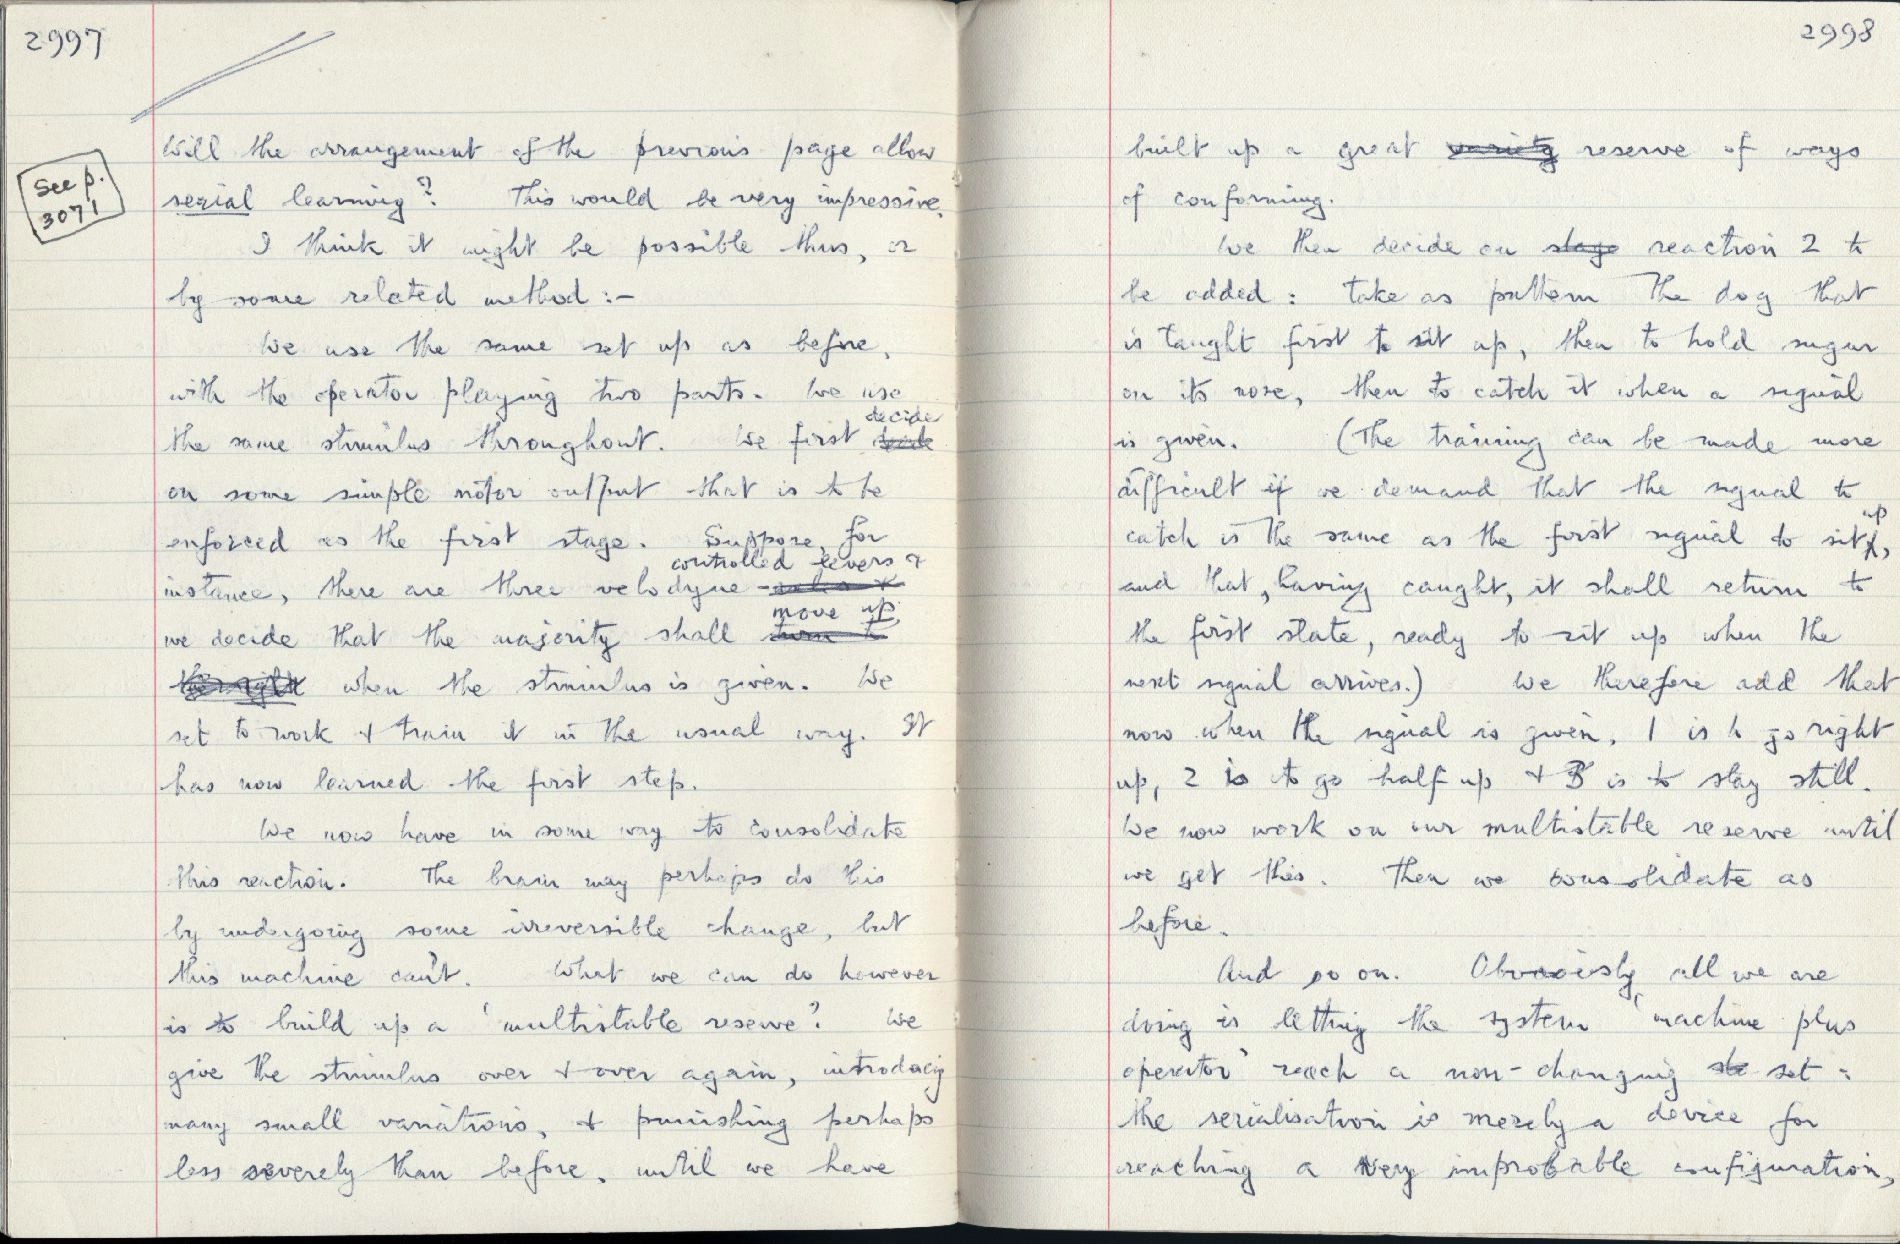 2997
See p.
3071
Will the arrangement of the previous page allow
serial learning? This would be very impressive.
I think it might be possible thus, or
by some related method :-
We use the same set up as before,
with the operator playing two parts. We use
the same stimulus throughout. We first decide
on some simple motor output that is to be
enforced as the first stage. Suppose, for
instance, there are three velodyne controlled levers &
we decide that the majority shall move up
when the stimulus is given. We
set to work & train it in the usual way. It
has now learned the first step.
We now have in some way to consolidate
this reaction. The brain may perhaps do this
by undergoing some irreversible change, but
this machine can't. What we can do however
is to build up a 'multistable reserve'. We
give the stimulus over & over again, introducing
many small variations, & punishing perhaps
less severely than before, until we have
2998
built up a great variety reserve of ways
of conforming.
We then decide on stage reaction 2 to
be added: take as pattern the dog that
is taught first to sit up, then to hold sugar
on its nose, then to catch it when a signal
is given. (The training can be made more
difficult if we demand that the signal to
catch is the same as the first signal to sit up,
and that, having caught, it shall return to
the first state, ready to sit up when the
next signal arrives.) We therefore add that
now when the signal is given, 1 is to go right
up, 2 is to go half-up & 3 is to stay still.
We now work on our multistable reserve until
we get this. Then we consolidate as
before.
And so on. Obviously all we are
doing is letting the system 'machine plus
operator' reach a non-changing set:
the serialisation is merely a device for
reaching a very improbable configuration,